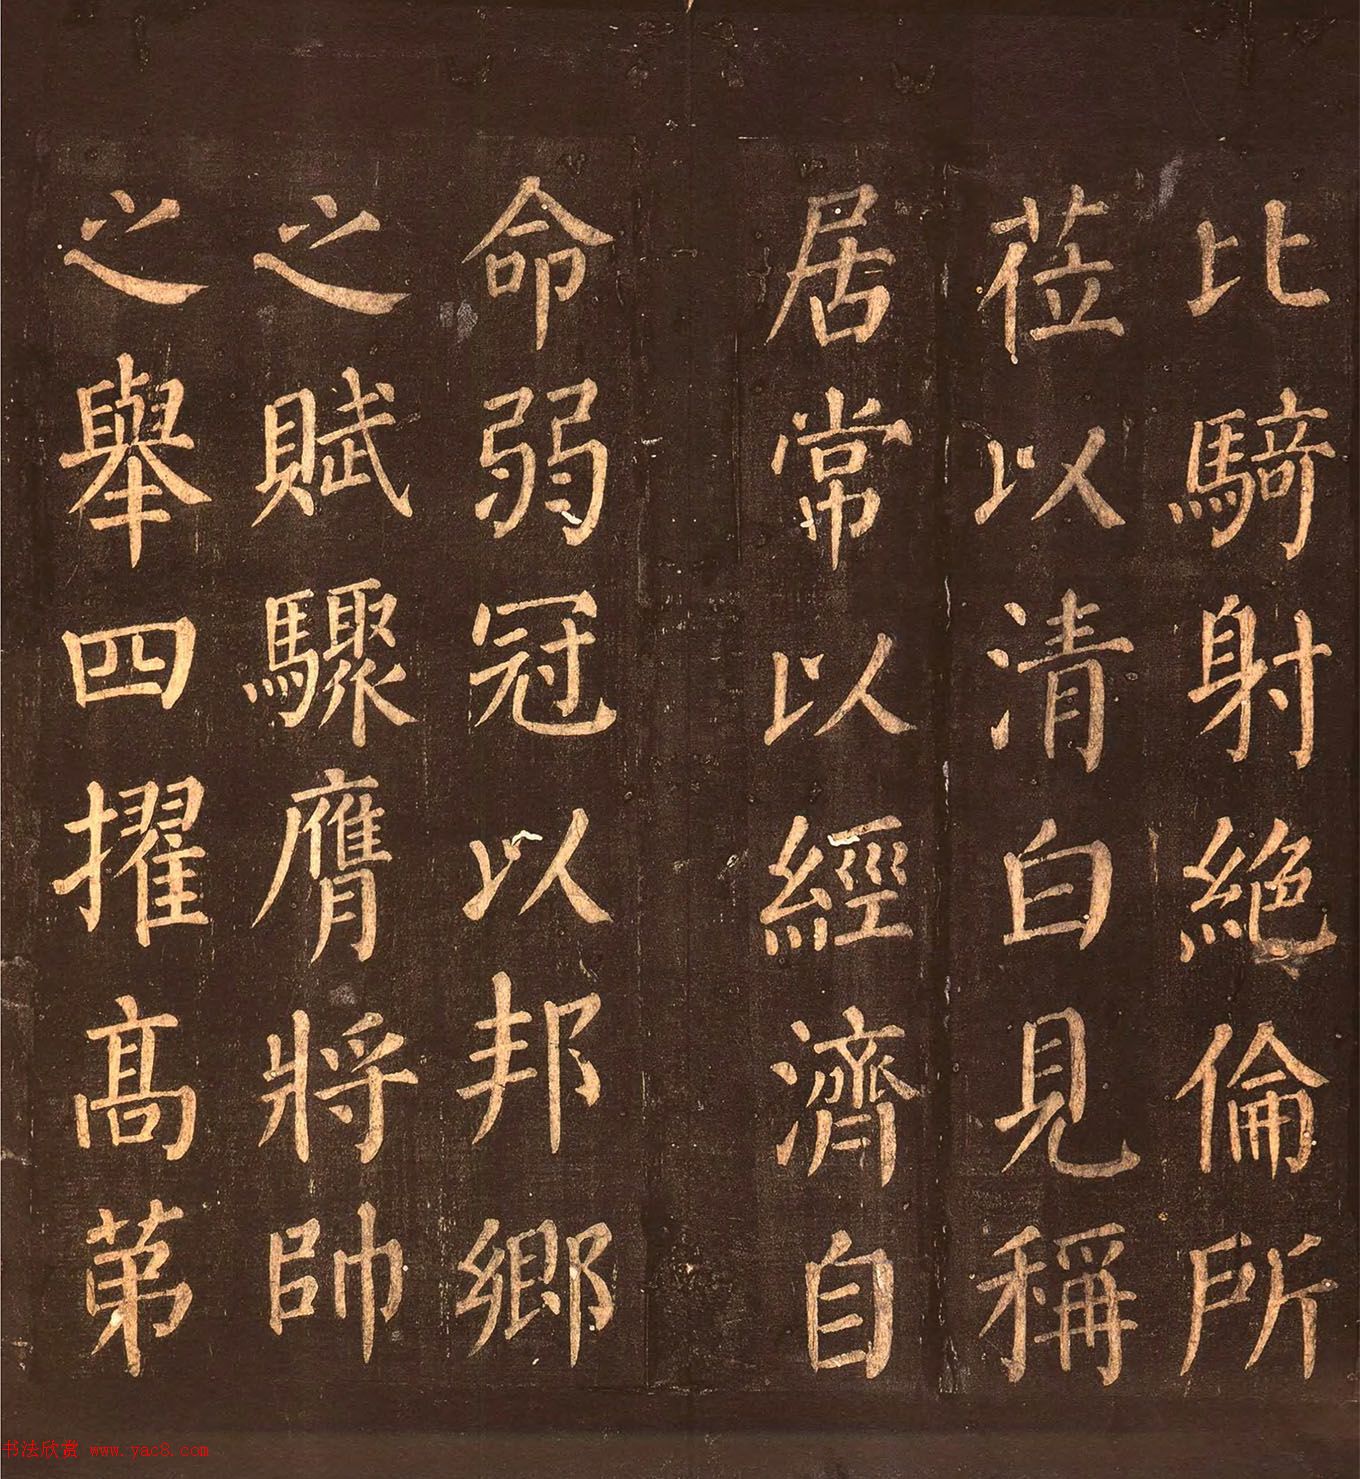 比騎射絕倫所
莅以清白見稱
居常以經濟自
命弱冠以邦鄉
之賦驟膺將帥
之舉四擢高第
书法欣赏 www.yac8.com